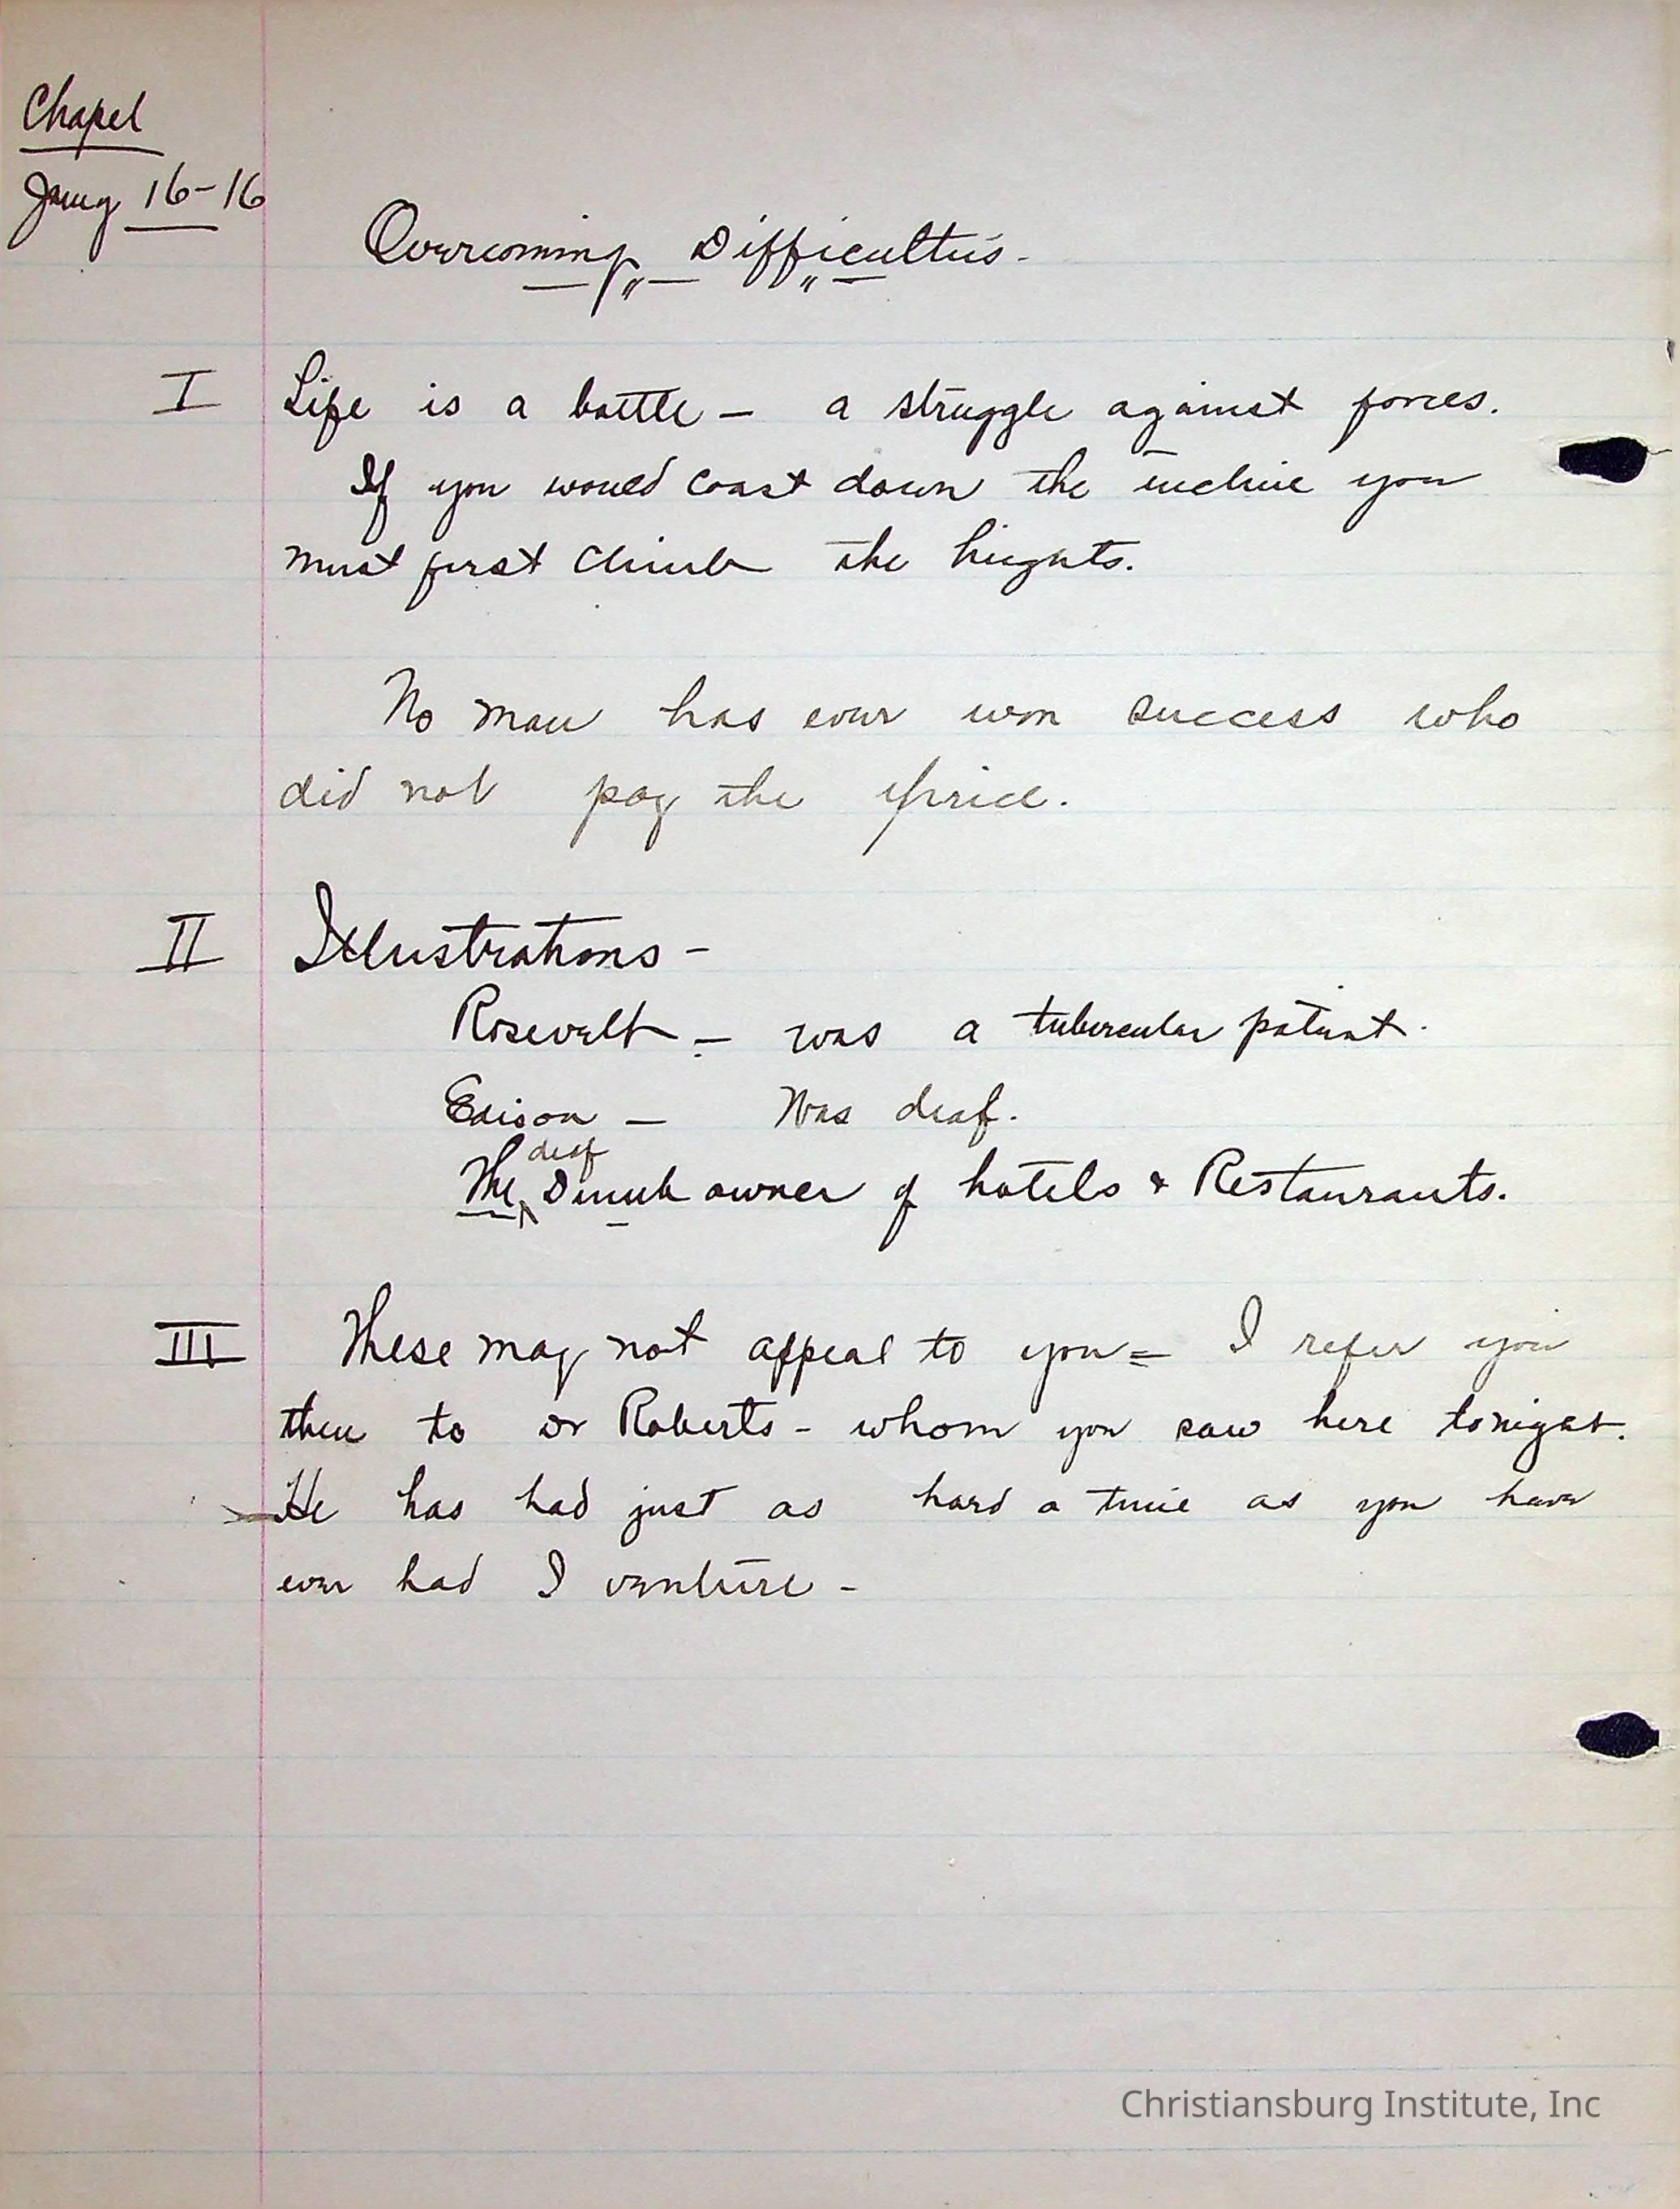 Chapel
Jany 16-16
Overcoming Difficulties-
I Life is a battle — a struggle against forces.
If you would coast down the incline you
must first climb the heights.
No man has ever won success who
did not pay the price.
II Illustrations -
Rosevelt — was a tubercular patient.
Edison — Was deaf.
deaf
The ^ Dumb owner of hotels & Restaurants.
III These may not appeal to you = I refer you
then to Dr Roberts - whom you saw here tonight.
He has had just as hard a time as you have
ever had I venture -
Christiansburg Institute, Inc